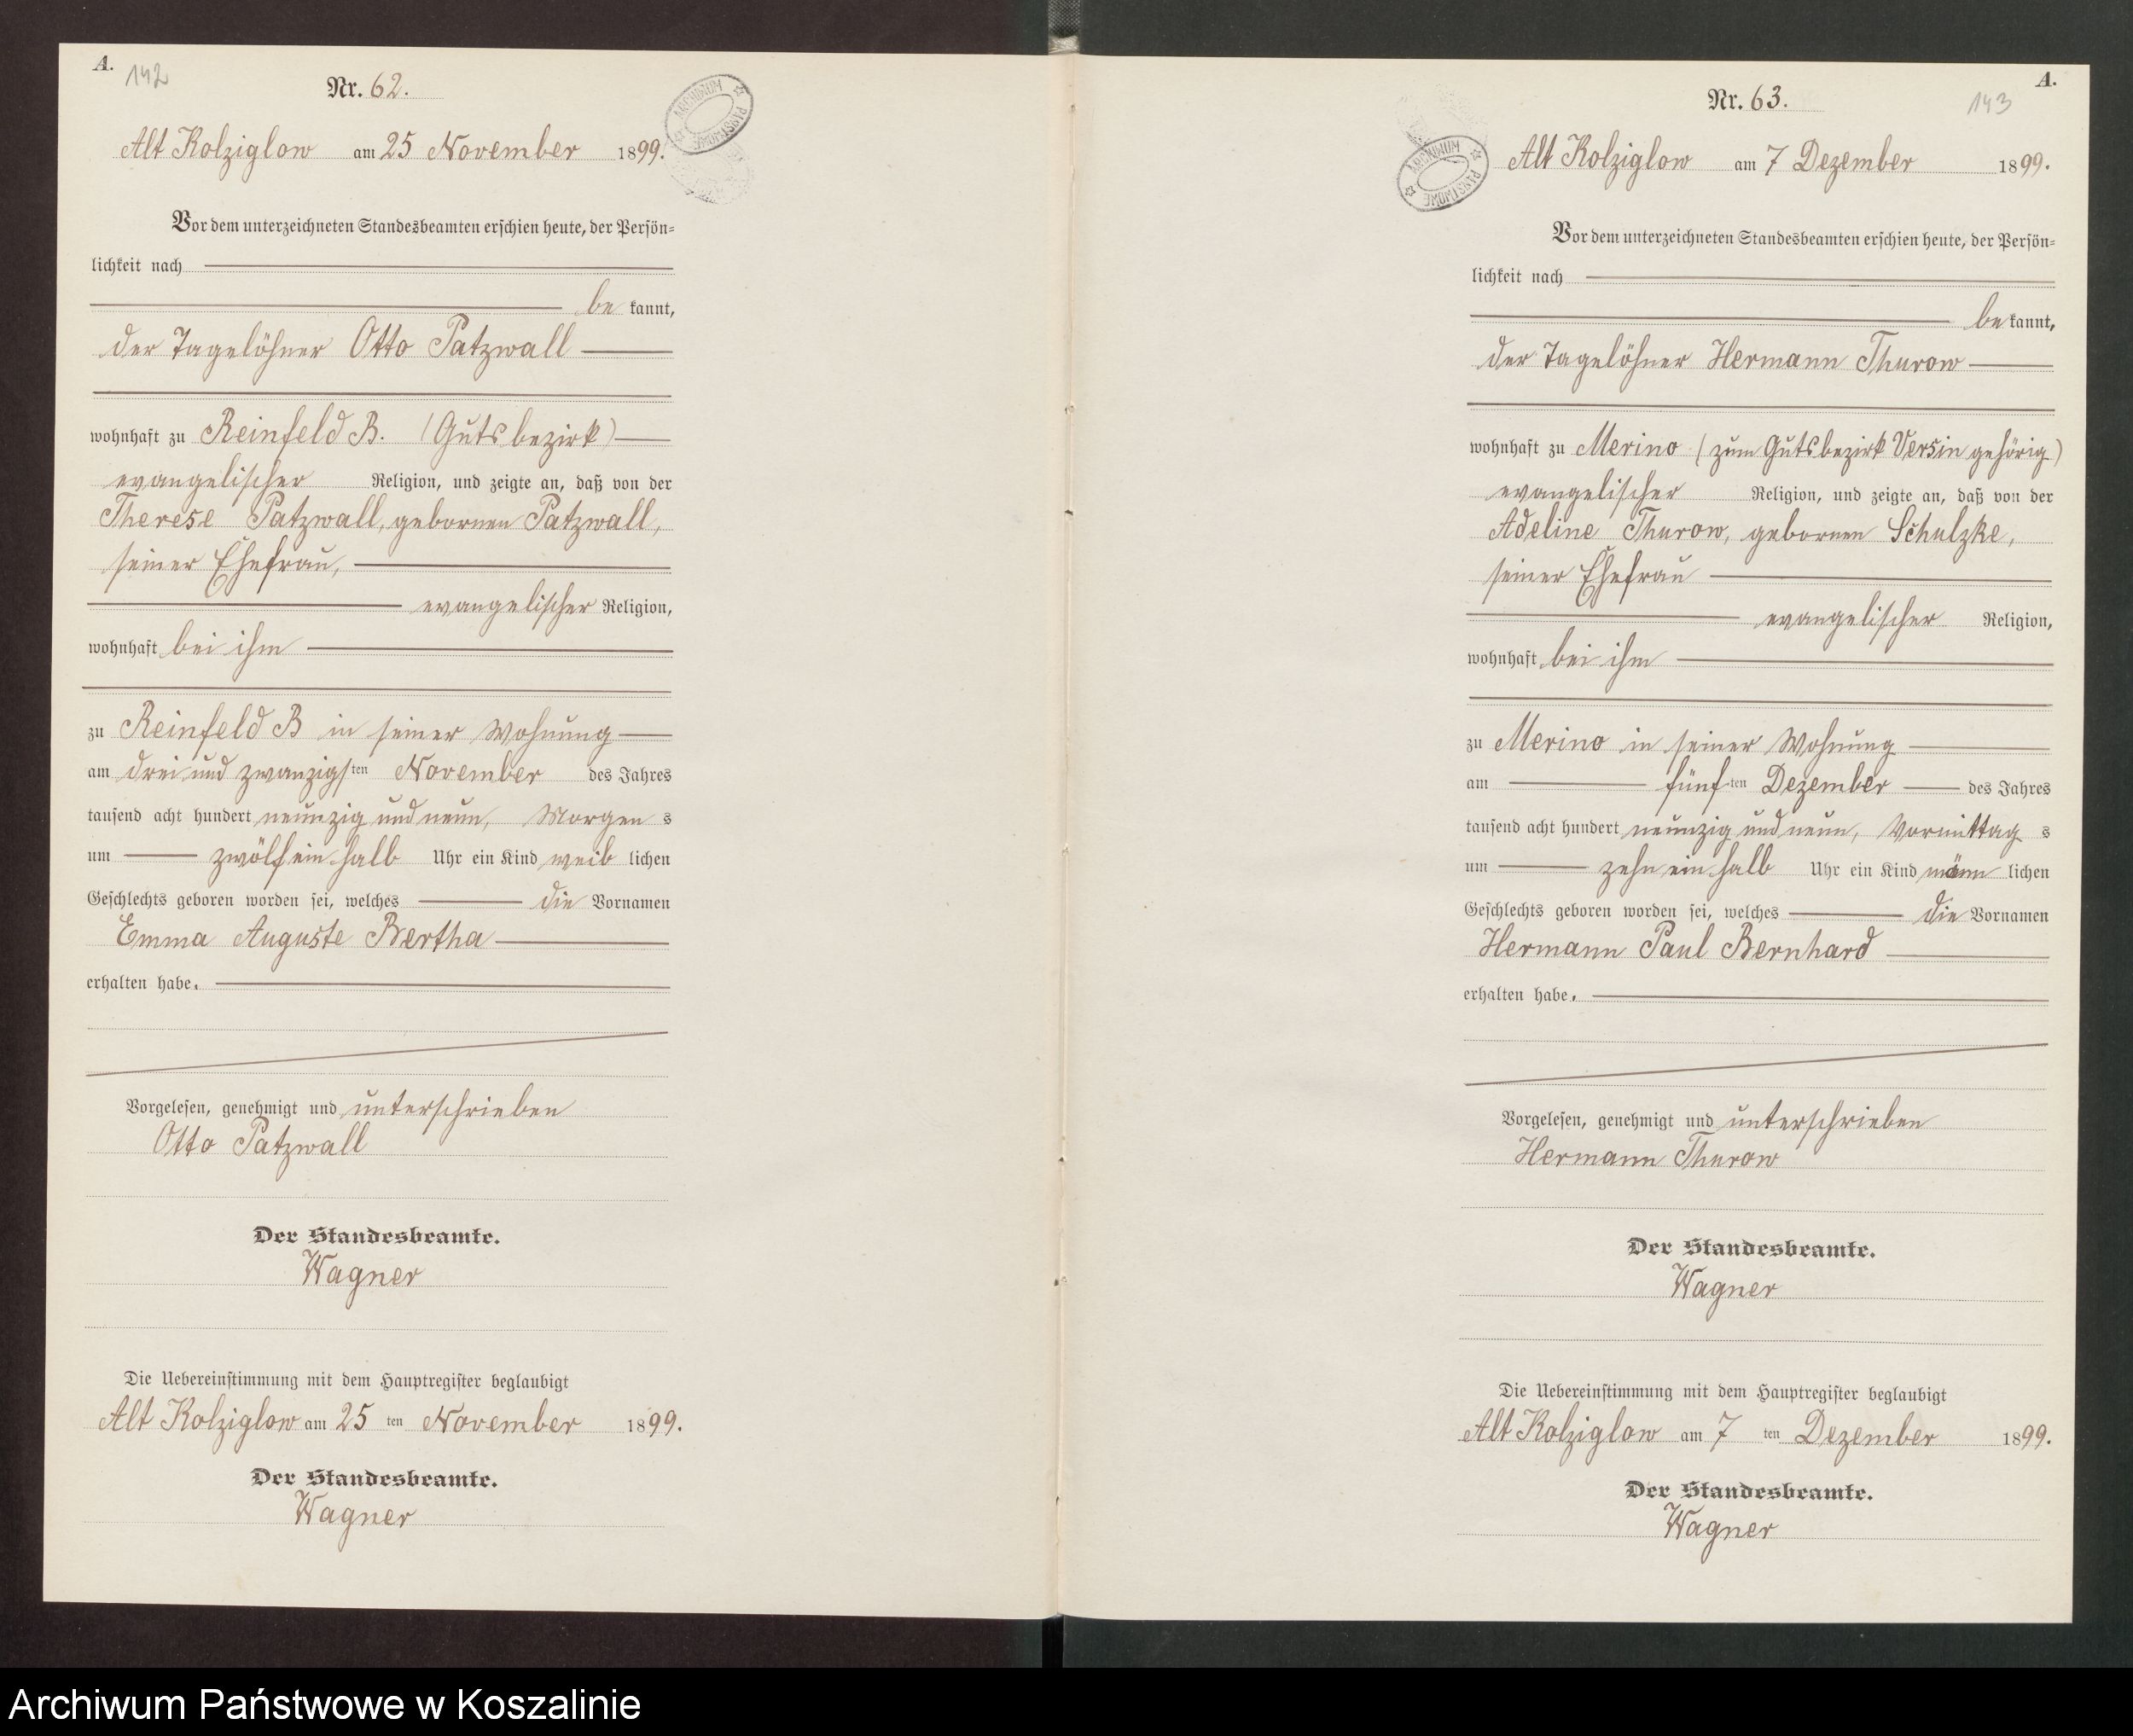 A.
142
Nr. 62.
ARCHIWUM PAŃSTWOWE
Alt Kolziglow am 25 November 1899.
Vor dem unterzeichneten Standesbeamten erschien heute, der Persön-
lichkeit nach
be kannt,
der Tagelöhner Otto Patzwall
wohnhaft zu Reinfeld B. (Gutsbezirk)
evangelischer Religion, und zeigte an, daß von der
Therese Patzwall, gebornen Patzwall,
seiner Ehefrau,
evangelischer Religion,
wohnhaft bei ihm
zu Reinfeld B in seiner Wohnung
am drei und zwanzigsten November des Jahres
tausend acht hundert neunzig und neun, Morgen s
um zwölf ein halb Uhr ein Kind weib lichen
Geschlechts geboren worden sei, welches die Vornamen
Emma Auguste Bertha
erhalten habe.
Vorgelesen, genehmigt und unterschrieben
Otto Patzwall
Der Standesbeamte.
Wagner
Die Uebereinstimmung mit dem Hauptregister beglaubigt
Alt Kolziglow am 25 ten November 1899.
Der Standesbeamte.
Wagner
A.
143
Nr. 63.
ARCHIWUM PAŃSTWOWE
Alt Kolziglow am 7 Dezember 1899.
Vor dem unterzeichneten Standesbeamten erschien heute, der Persön-
lichkeit nach
be kannt,
der Tagelöhner Hermann Thurow
wohnhaft zu Merino (zum Gutsbezirk Versin gehörig)
evangelischer Religion, und zeigte an, daß von der
Adeline Thurow, gebornen Schulzke,
seiner Ehefrau
evangelischer Religion,
wohnhaft bei ihm
zu Merino in seiner Wohnung
am fünf ten Dezember des Jahres
tausend acht hundert neunzig und neun, Vormittag s
um zehn ein halb Uhr ein Kind männ lichen
Geschlechts geboren worden sei, welches die Vornamen
Hermann Paul Bernhard
erhalten habe.
Vorgelesen, genehmigt und unterschrieben
Hermann Thurow
Der Standesbeamte.
Wagner
Die Uebereinstimmung mit dem Hauptregister beglaubigt
Alt Kolziglow am 7 ten Dezember 1899.
Der Standesbeamte.
Wagner
Archiwum Państwowe w Koszalinie